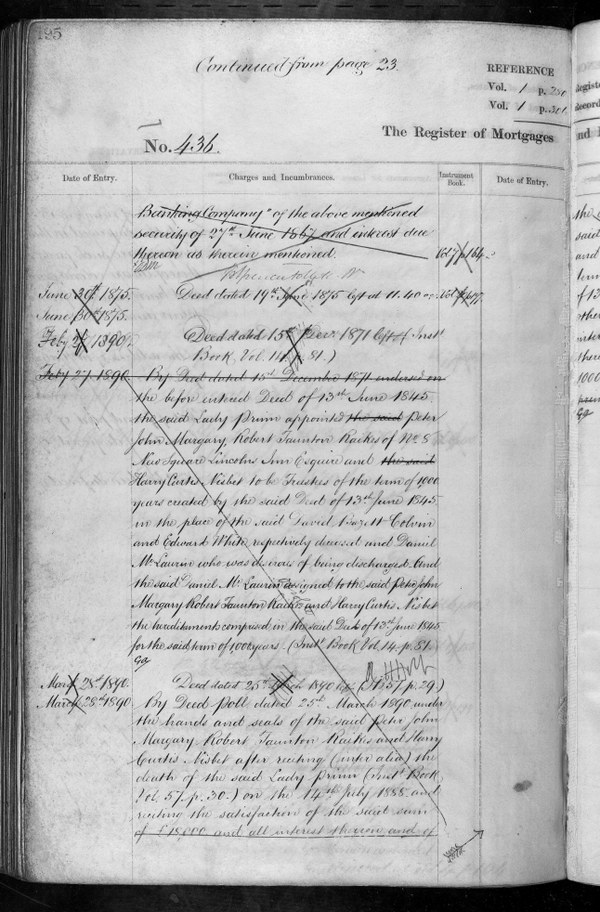 195
Continued from page 23.
REFERENCE
Vol. 1 p. 250
Vol. 1 p. 301
No. 436.
The Register of Mortgages
Date of Entry.
Charges and Incumbrances.
Instrument Book.
Date of Entry.
Banking Company" of the above mentioned
security of 27th June 1867 and interest due
thereon as therein mentioned. Vol 7 p 164
June 30th 1875. Deed dated 19th June 1875 left at 11.40
June 30th 1875.
Feby 27 1890. Deed dated 15th Decr 1871 left Inst
Book, Vol. 14. p. 81.)
Feby 27. 1890. By Deed dated 15th December 1871 endorsed on
the before entered Deed of 13th June 1845.
the said Lady Prinn appointed the said Peter
John Margary, Robert Taunton Raikes of No. 8
New Square Lincolns Inn Esquire and the said
Harry Curtis Nisbet to be Trustees of the term of 1000
years created by the said Deed of 13th June 1845
in the place of the said David Colvin
and Edward White respectively deceased and Daniel
Mc Laurin who was desirous of being discharged. And
the said Daniel Mc Laurin assigned to the said Peter John
Margary Robert Taunton Raikes and Harry Curtis Nisbet
the hereditaments comprised in the said Deed of 13th June 1845
for the said term of 1000 years. (Inst. Book Vol. 14. p. 81.
March 28th 1890. Deed dated 25th March 1890 (57. p. 29.)
March 28th 1890 By Deed Poll dated 25th March 1890 under
the hands and seals of the said Peter John
Margary Robert Taunton Raikes and Harry
Curtis Nisbet after reciting (inter alia) the
death of the said Lady Prinn (Inst. Book
Vol. 57. p. 30.) on the 14th July 1888 and
reciting the satisfaction of the said sum
of £18,000 and all interest thereon and of